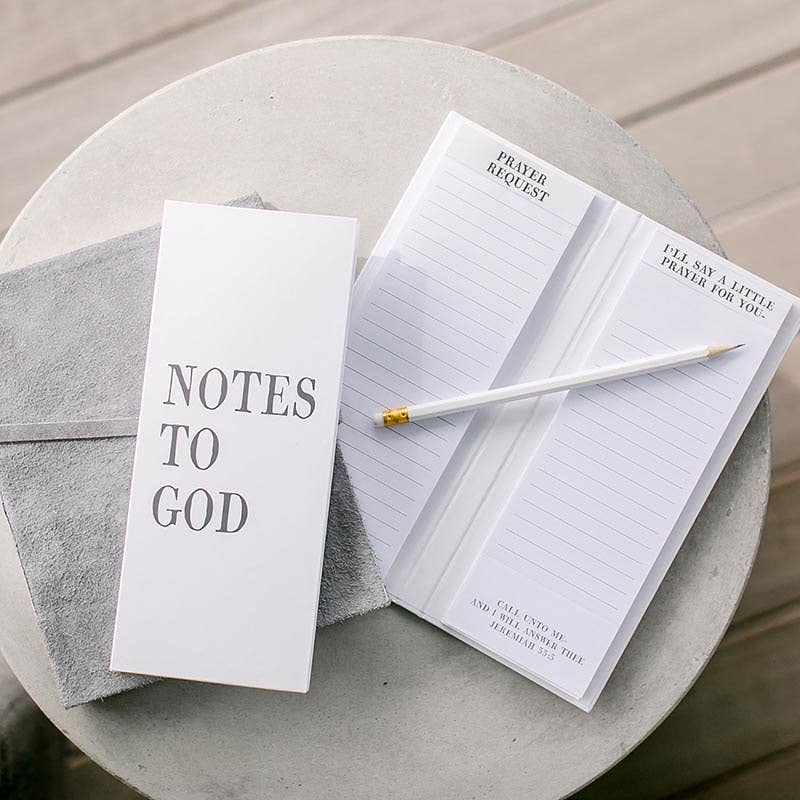 NOTES
TO
GOD
PRAYER
REQUEST
I'LL SAY A LITTLE
PRAYER FOR YOU-
CALL UNTO ME-
AND I WILL ANSWER THEE
JEREMIAH 33:3